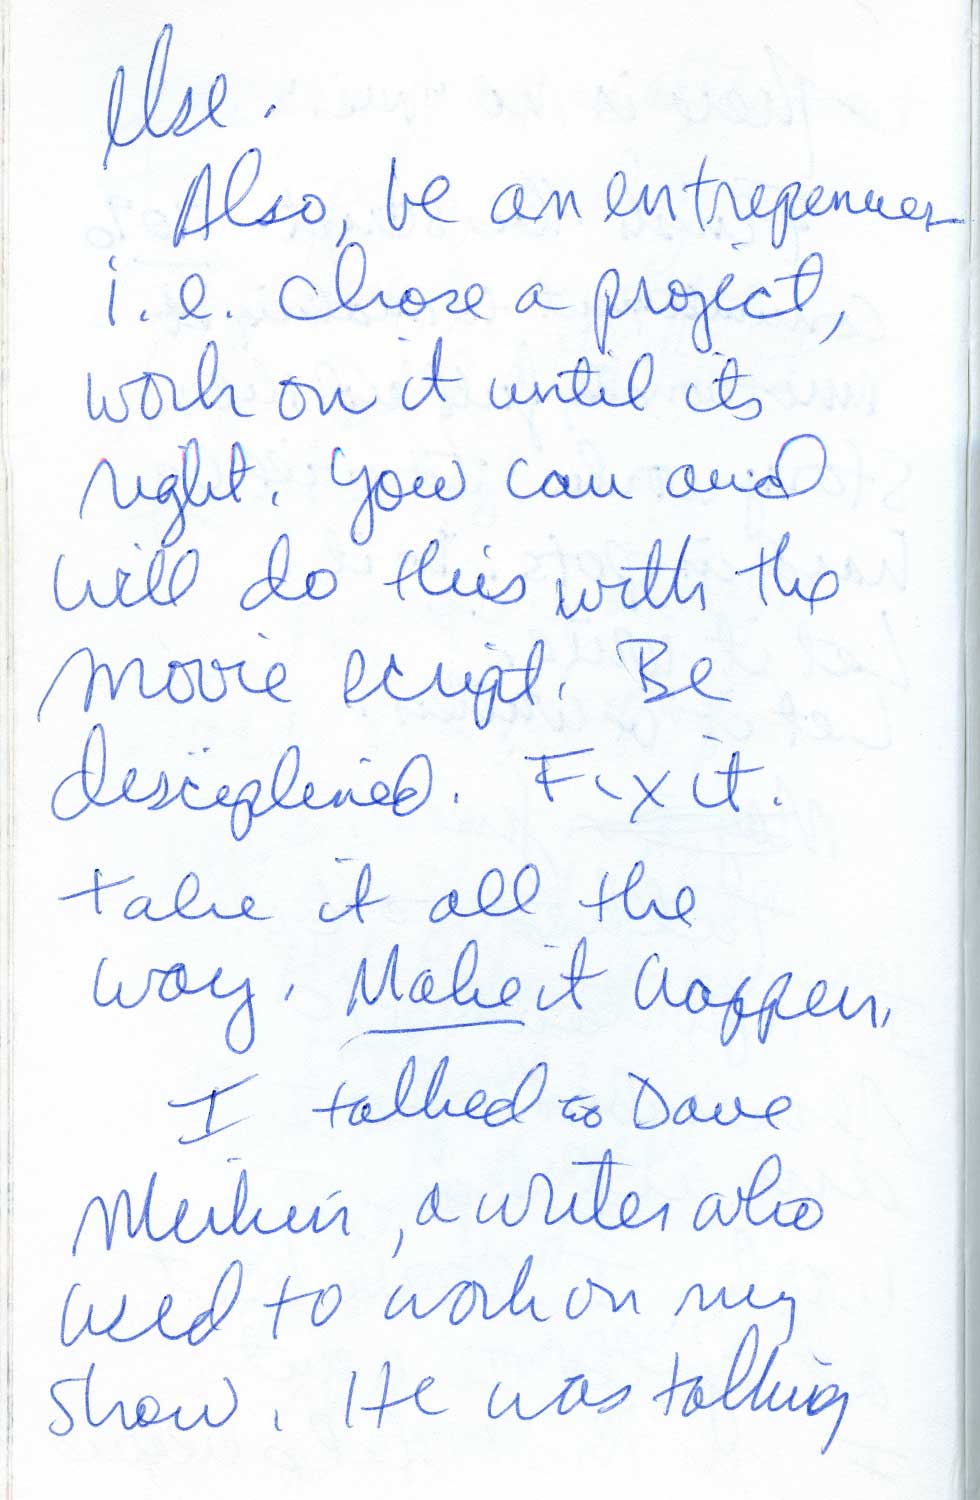 else.
Also, be an entrepenuer
i.e. chose a project,
work on it until its
right. You can and
will do this with the
movie script. Be
disciplined. Fix it.
take it all the
way. Make it happen.
I talked to Dave
a writer who
used to work on my
show. He was talking